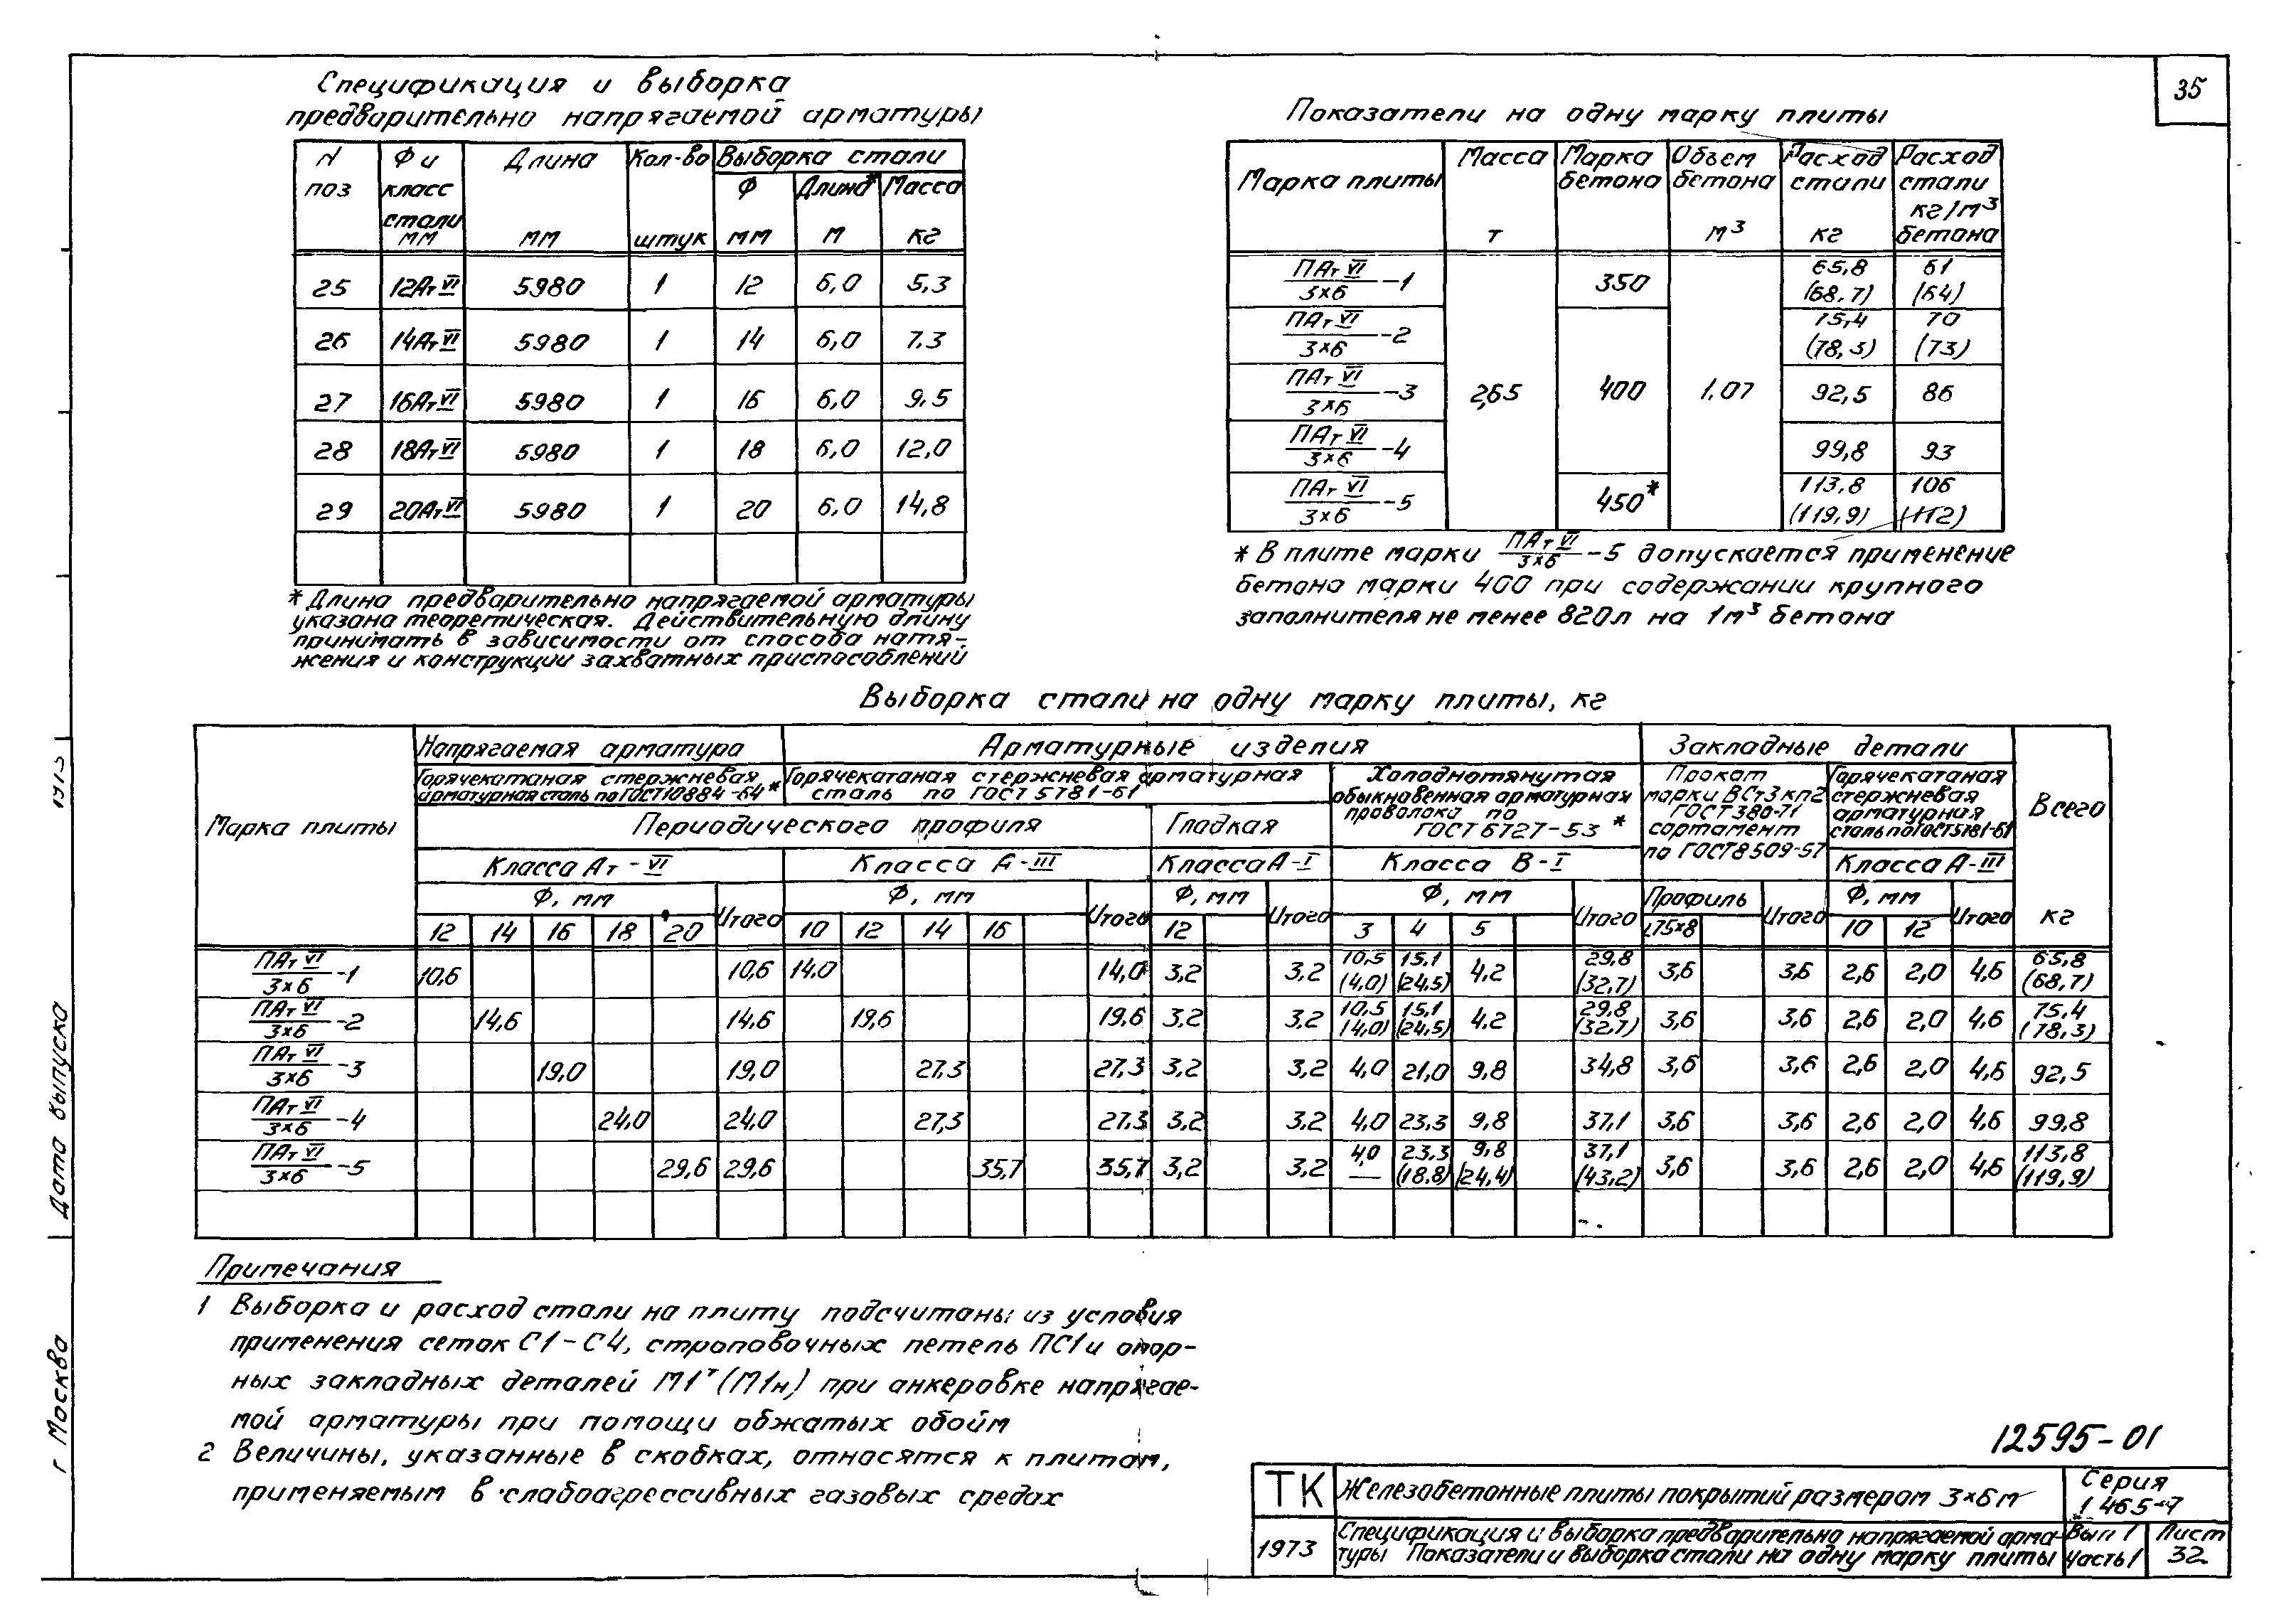 35
Спецификация и выборка
предварительно напрягаемой арматуры
N поз | Ф и класс стали мм | Длина мм | Кол-во штук | Выборка стали
Ф мм | Длина* м | Масса кг
25 | 12Ат VI | 5980 | 1 | 12 | 6,0 | 5,3
26 | 14Ат VI | 5980 | 1 | 14 | 6,0 | 7.3
27 | 16Ат VI | 5980 | 1 | 16 | 6,0 | 9,5
28 | 18Ат VI | 5980 | 1 | 18 | 6,0 | 12,0
29 | 20Ат VI | 5980 | 1 | 20 | 6,0 | 14,8
* Длина предварительно напрягаемой арматуры
указана теоретическая. Действительную длину
принимать в зависимости от способа натя-
жения и конструкции захватных приспособлений
Показатели на одну марку плиты
Марка плиты | Масса т | Марка бетона | Объем бетона м³ | Расход стали кг | Расход стали кг/м³ бетона
ПАт VI/3×6 -1 | 2,65 | 350 | 1.07 | 65,8 (68,7) | 61 (64)
ПАт VI/3×6 -2 | 400 | 75,4 (78,3) | 70 (73)
ПАт VI/3×6 -3 | 92,5 | 86
ПАт VI/3×6 -4 | 99,8 | 93
ПАт VI/3×6 -5 | 450* | 113,8 (119,9) | 106 (112)
* В плите марки ПАт VI/3×6 -5 допускается применение
бетона марки 400 при содержании крупного
заполнителя не менее 820л на 1м³ бетона
Выборка стали на одну марку плиты, кг
Марка плиты | Напрягаемая арматура | Арматурные изделия | Закладные детали | Всего кг
Горячекатаная стержневая арматурная сталь по ГОСТ10884-64* | Горячекатаная стержневая арматурная сталь по ГОСТ 5781-61 | Холоднотянутая обыкновенная арматурная проволока по ГОСТ 6727-53* | Прокат марки ВСт3кп2 ГОСТ 380-71 сортамент по ГОСТ8509-57 | Горячекатаная стержневая арматурная сталь по ГОСТ5781-61
Периодического профиля | Гладкая
Класса Ат-VI | Класса А-III | Класса А-I | Класса В-I | Класса А-III
Ф, мм | Итого | Ф, мм | Итого | Ф, мм | Итого | Ф, мм | Итого | Профиль | Итого | Ф, мм | Итого
12 | 14 | 16 | 18 | 20 | 10 | 12 | 14 | 16 | 12 | 3 | 4 | 5 | L75×8 | 10 | 12
ПАт VI/3×6 -1 | 10,6 | 10,6 | 14.0 | 14,0 | 3,2 | 3,2 | 10,5 (4,0) | 15,1 (24,5) | 4,2 | 29,8 (32,7) | 3,6 | 3,6 | 2,6 | 2,0 | 4,6 | 65,8 (68,7)
ПАт VI/3×6 -2 | 14,6 | 14,6 | 19,6 | 19,6 | 3,2 | 3,2 | 10,5 (4,0) | 15,1 (24,5) | 4.2 | 29,8 (32,7) | 3,6 | 3,6 | 2,6 | 2,0 | 4,6 | 75,4 (78,3)
ПАт VI/3×6 -3 | 19,0 | 19,0 | 27,3 | 27,3 | 3,2 | 3,2 | 4,0 | 21,0 | 9,8 | 34,8 | 3,6 | 3,6 | 2,6 | 2,0 | 4,6 | 92,5
ПАт VI/3×6 -4 | 24,0 | 24,0 | 27,3 | 27,3 | 3,2 | 3,2 | 4,0 | 23,3 | 9,8 | 37,1 | 3,6 | 3,6 | 2,6 | 2,0 | 4,6 | 99,8
ПАт VI/3×6 -5 | 29,6 | 29,6 | 35,7 | 35,7 | 3,2 | 3,2 | 4,0 — | 23,3 (18,8) | 9,8 (24,4) | 37,1 (43,2) | 3,6 | 3,6 | 2,6 | 2,0 | 4,6 | 113,8 (119,9)
Примечания
1 Выборка и расход стали на плиту подсчитаны из условия
применения сеток С1-С4, строповочных петель ПС1 и опор-
ных закладных деталей М1т (М1н) при анкеровке напрягае-
мой арматуры при помощи обжатых обойм
2 Величины, указанные в скобках, относятся к плитам,
применяемым в слабоагрессивных газовых средах
12595-01
ТК | Железобетонные плиты покрытий размером 3×6м | Серия 1 465-7
1973 | Спецификация и выборка предварительно напрягаемой арма-
туры Показатели и выборка стали на одну марку плиты | Вып 1 Часть 1 | Лист 32
г Москва | Дата выпуска 1973